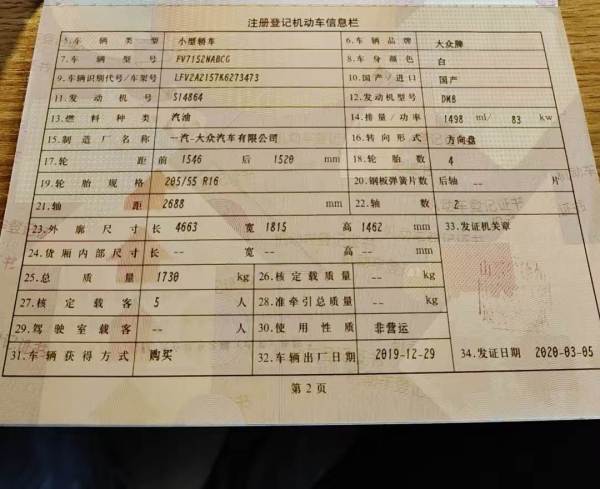 注册登记机动车信息栏
5.车辆类型 小型轿车 6.车辆品牌 大众牌
7.车辆型号 FV7152NABCG 8.车身颜色 白
9.车辆识别代号/车架号 LFV2A2157K6273473 10.国产/进口 国产
11.发动机号 S14864 12.发动机型号 DMB
13.燃料种类 汽油 14.排量/功率 1498 ml/ 83 kw
15.制造厂名称 一汽-大众汽车有限公司 16.转向形式 方向盘
17.轮距 前 1546 后 1520 mm 18.轮胎数 4
19.轮胎规格 205/55 R16 20.钢板弹簧片数 后轴 -- 片
21.轴距 2688 mm 22.轴数 2
23.外廓尺寸 长 4663 宽 1815 高 1462 mm 33.发证机关章
24.货厢内部尺寸 长 -- 宽 -- 高 -- mm
25.总质量 1730 kg 26.核定载质量 -- kg
27.核定载客 5 人 28.准牵引总质量 -- kg
29.驾驶室载客 -- 人 30.使用性质 非营运
31.车辆获得方式 购买 32.车辆出厂日期 2019-12-29 34.发证日期 2020-03-05
第2页